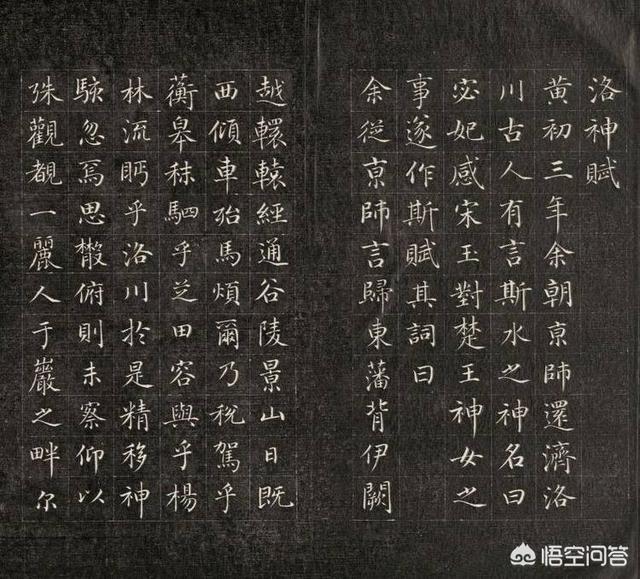 洛神賦
黄初三年余朝京師還濟洛
川古人有言斯水之神名曰
宓妃感宋王對楚王神女之
事遂作斯賦其詞曰
余從京師言歸東藩背伊闕
越轘轅經通谷陵景山日既
西傾車殆馬煩爾乃税駕乎
蘅皋秣駟乎芝田容與乎楊
林流眄乎洛川於是精移神
駭忽焉思散俯則未察仰以
殊觀覩一麗人于巖之畔尔
悟空问答